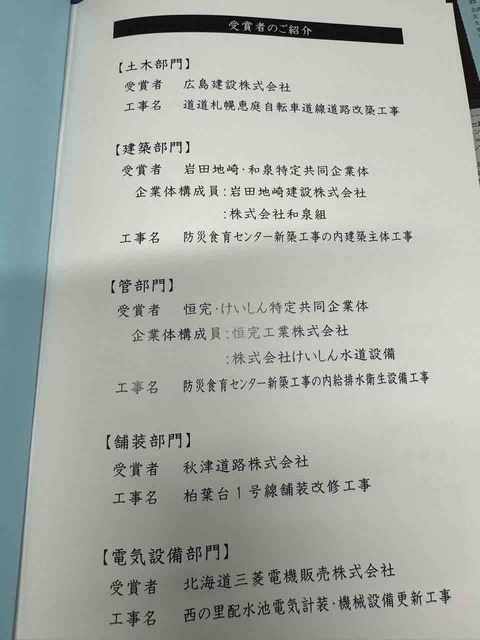 受賞者のご紹介
【土木部門】
受賞者 広島建設株式会社
工事名 道道札幌恵庭自転車道線道路改築工事
【建築部門】
受賞者 岩田地崎・和泉特定共同企業体
企業体構成員:岩田地崎建設株式会社
:株式会社和泉組
工事名 防災食育センター新築工事の内建築主体工事
【管部門】
受賞者 恒完・けいしん特定共同企業体
企業体構成員:恒完工業株式会社
:株式会社けいしん水道設備
工事名 防災食育センター新築工事の内給排水衛生設備工事
【舗装部門】
受賞者 秋津道路株式会社
工事名 柏葉台1号線舗装改修工事
【電気設備部門】
受賞者 北海道三菱電機販売株式会社
工事名 西の里配水池電気計装・機械設備更新工事